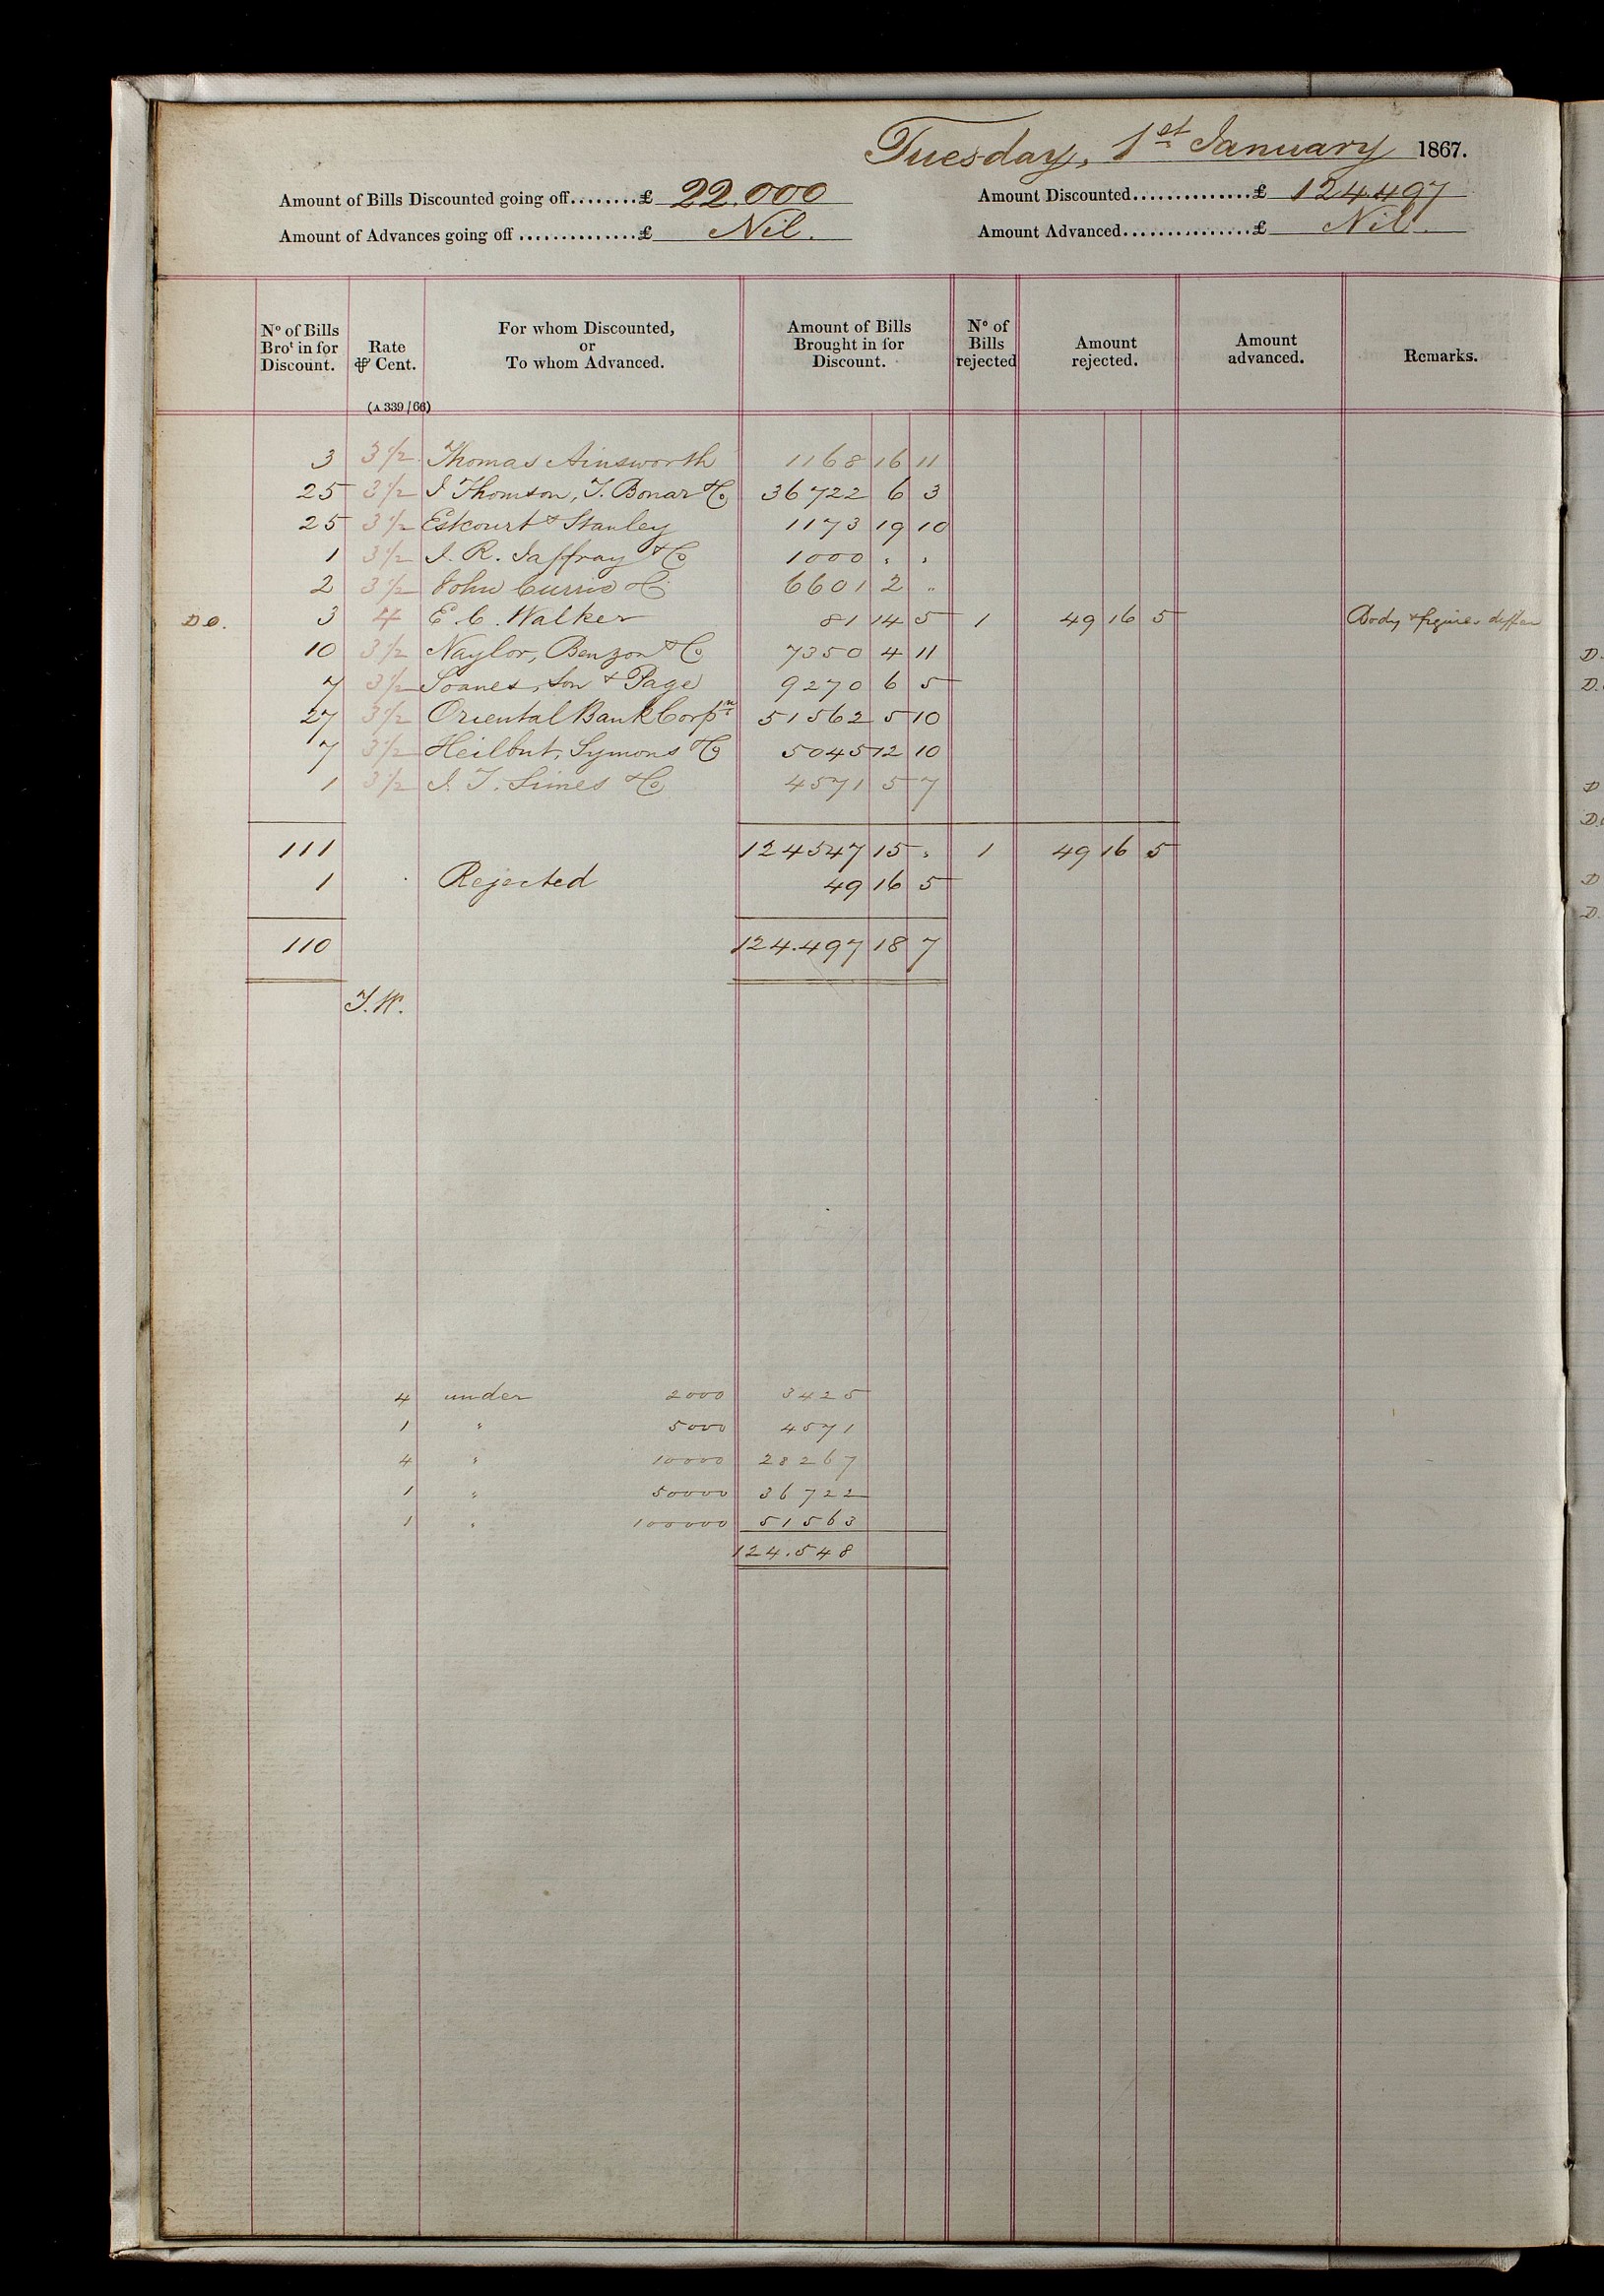 Tuesday, 1st January 1867.
Amount of Bills Discounted going off........£ 22.000 Amount Discounted..............£ 124.497
Amount of Advances going off...............£ Nil. Amount Advanced................£ Nil.
No of Bills Brot in for Discount. Rate ⅌ Cent. For whom Discounted, or To whom Advanced. Amount of Bills Brought in for Discount. No of Bills rejected Amount rejected. Amount advanced. Remarks.
(A 339/66)
3 3 1/2 Thomas Ainsworth 1168 16 11
25 3 1/2 J Thomson, T. Bonar & Co 36722 6 3
25 3 1/2 Estcourt & Stanley 1173 19 10
1 3 1/2 J. R. Jaffray & Co 1000 " "
2 3 1/2 John Currie & Co 6601 2 "
D.O. 3 4 E. C. Walker 81 14 5 1 49 16 5 Body & figures differ
10 3 1/2 Naylor, Benzon & Co 7350 4 11
7 3 1/2 Soanes, Son & Page 9270 6 5
27 3 1/2 Oriental Bank Corpn 51562 5 10
7 3 1/2 Heilbut, Symons & Co 5045 12 10
1 3 1/2 J. T. Simes & Co 4571 5 7
111 124547 15 " 1 49 16 5
1 Rejected 49 16 5
110 124.497 18 7
T.W.
4 under 2000 3425
1 " 5000 4571
4 " 10000 28267
1 " 50000 36722
1 " 100000 51563
124.548